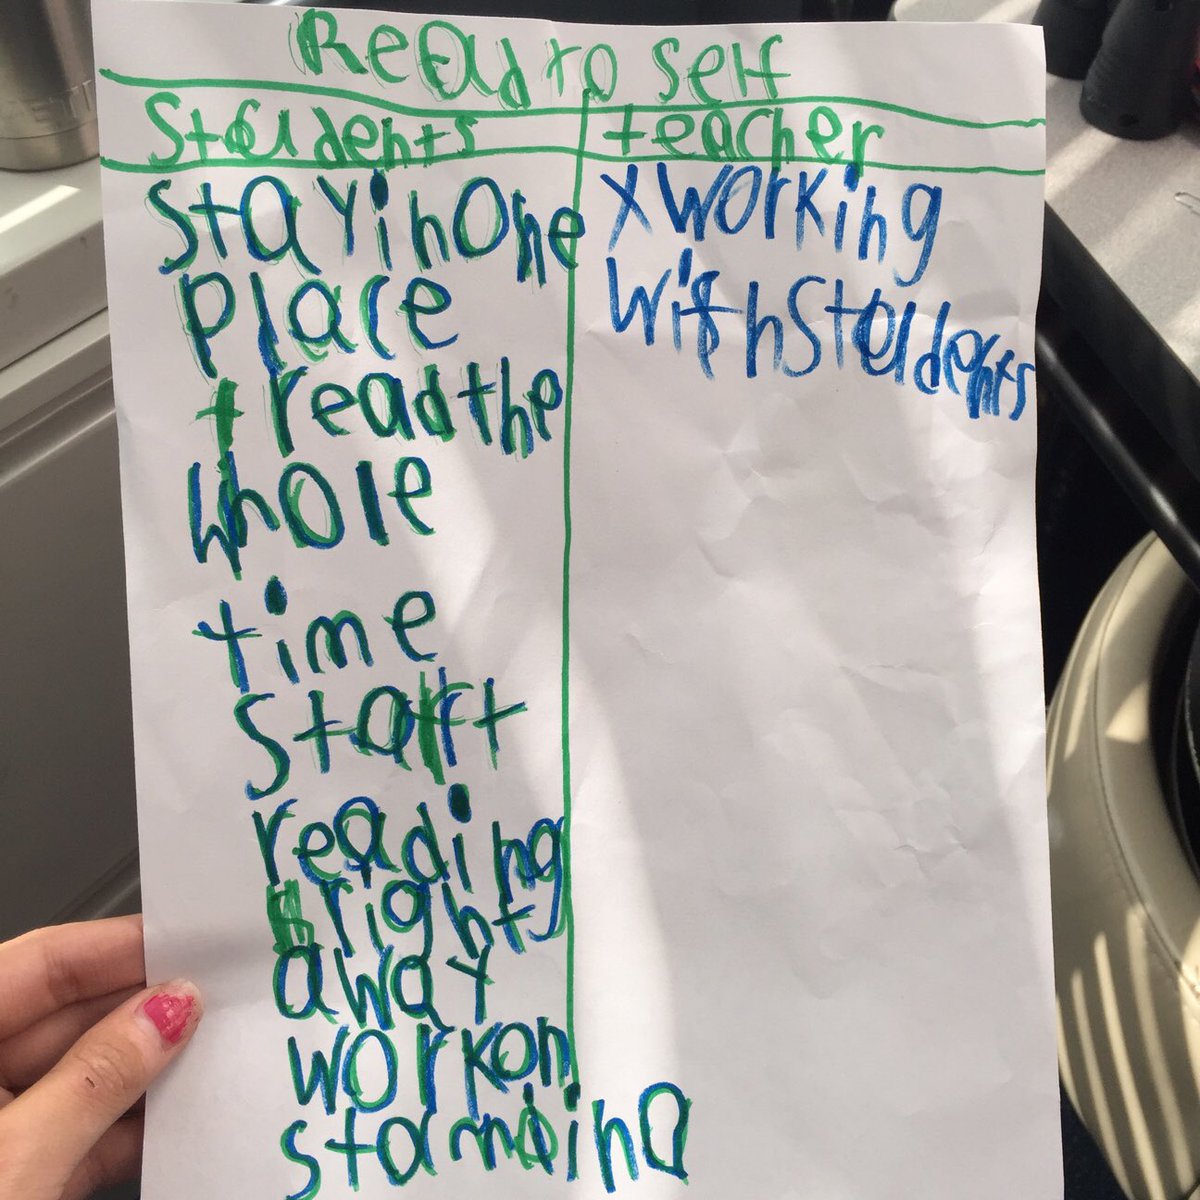 Read to self
Students teacher
stay in one
place
read the
whole
time
start
reading
right
away
work on
stamina
x working
with students